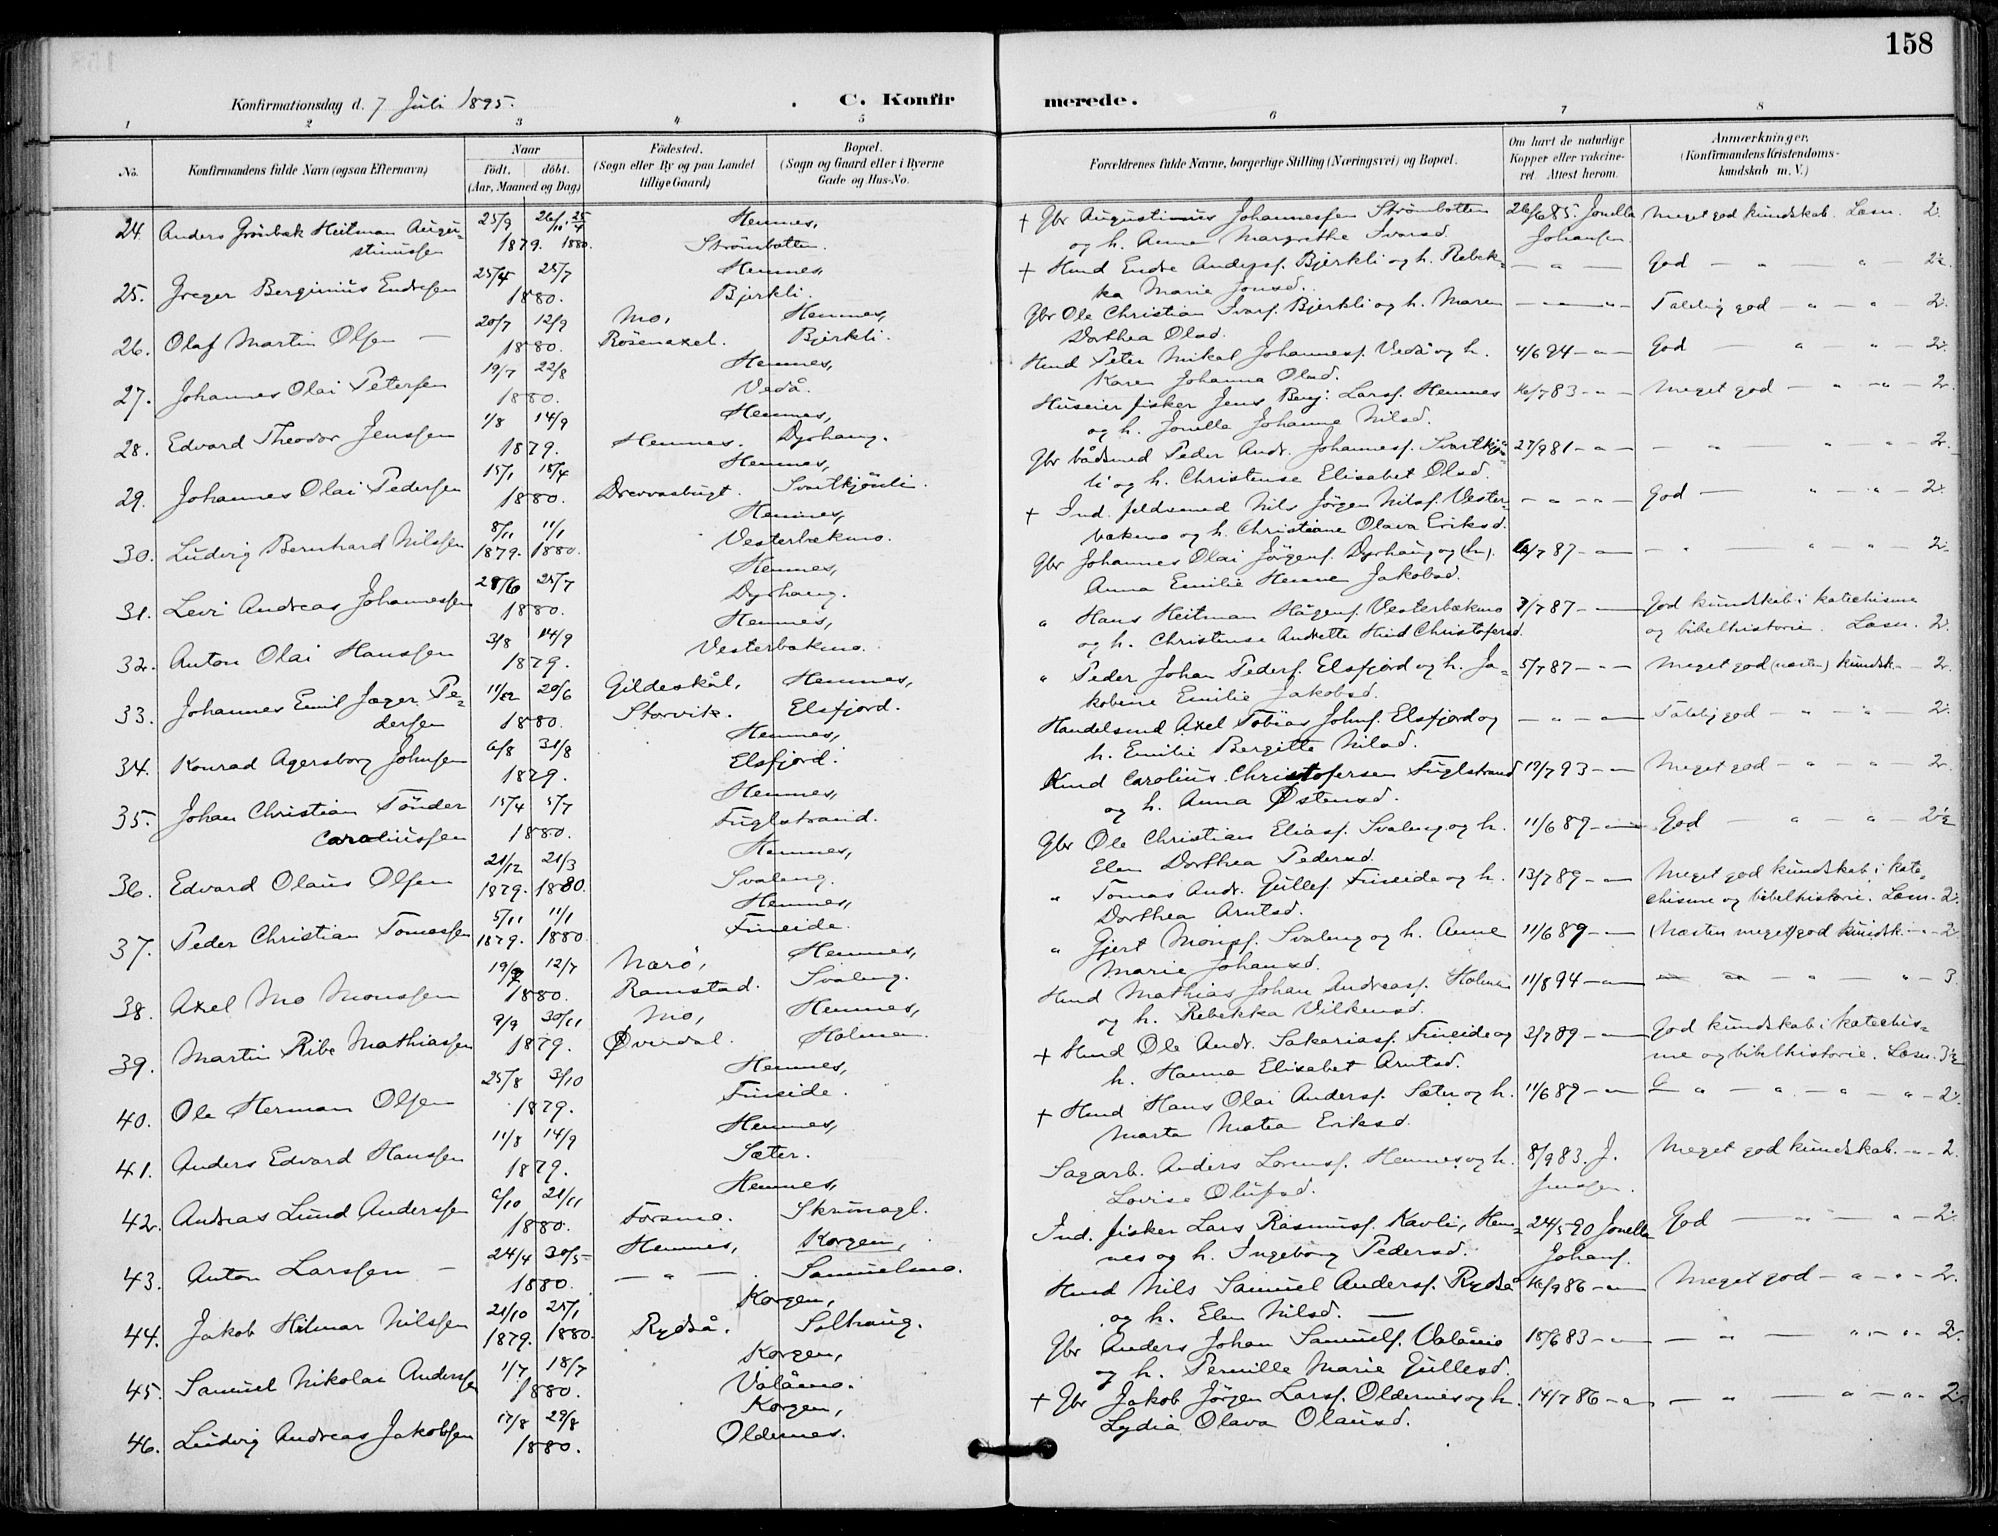 158
Konfirmationsdag d. 7 Juli 1895. C. Konfirmerede.
1 2 3 4 5 6 7 8
No. Konfirmandens fulde Navn (ogsaa Efternavn) Naar født. døbt. (Aar, Maaned og Dag) Fødested. (Sogn eller By og paa Landet tillige Gaard) Bopæl. (Sogn og Gaard eller i Byerne Gade og Hus-No. Forældrenes fulde Navne, borgerlige Stilling (Næringsvei) og Bopæl. Om havt de naturlige Kopper eller vakcineret. Attest herom. Anmærkninger. (Konfirmandens Kristendomskundskab m. V.)
24. Anders Grönbæk Heitman Augustinussen 25/9 1879. 1880. Hemnes, Strömbotten. + Gbr Augustinus Johannessen Strömbotten og h. Anne Margrethe Ivarsd. 85. Jonella Johansen. Meget god kundskab. Læsn. 2.
25. Greger Berginius Endresen 25/4 25/7 1880. Hemnes, Bjerkli. + Hmd Endre Anderss. Bjerkli og h. Rebekka Marie Jonsd. — " — God — " — " — 2½.
26. Olaf Martin Olsen — 20/7 12/9 1880. Mo, Rösenaxel. Hemnes, Bjerkli. Gbr Ole Christian Ivars. Bjerkli og h. Maren Dorthea Olsd. Tålelig god — " — " — 2.
27. Johannes Olai Petersen 19/7 22/8 1880. Hemnes, Vedå. Hmd Peter Mikal Johanness. Vedå og h. Karen Johanna Olsd. 4/6 94 — " — God — " — " — 2.
28. Edvard Theodor Jenssen 1/8 14/9 1879. Hemnes. Hemnes, Dyrhaug. Huseier fisker Jens Benj: Larss. Hemnes og h. Jonella Johanna Nilsd. 83 — " — Meget god — " — " — 2.
29. Johannes Olai Pedersen 15/1 18/4 1880. Drevvasbugt. Hemnes, Svartkjönli. Gbr bådsmd Peder Andr. Johanness. Svartkjönli og h. Christense Elisabet Olsd. 27/9 81 — " — — " " — " — 2.
30. Ludvig Bernhard Nilssen 8/11 1879. 11/1 1880. Hemnes, Vesterbækmo. + Ind. feldsmed Nils Jörgen Nilss. Vesterbækmo og h. Christiane Olava Eriksd. — " — " — God — " — " — 2.
31. Levi Andreas Johannessen 28/6 25/7 1880. Hemnes, Dyrhaug. Gbr Johannes Olai Jörgens. Dyrhaug og (h). Anna Emilie Hemne Jakobsd. 87 — " — — " — " — " — 2.
32. Anton Olai Hanssen 3/8 14/9 1879. Hemnes, Vesterbækmo. " Hans Heitman Hågens. Vesterbækmo og h. Christense Andrette Hind Christofersd. 87 — " — God kundskab i katechisme og bibelhistorie. Læsn. 2.
33. Johannes Emil Jæger Pedersen 11/12 20/6 1880. Gildeskål, Storvik. Hemnes, Elsfjord. " Peder Johan Peders. Elsfjord og h. Jakobine Emilie Jakobsd. 5/7 87 — " — Meget god (næsten) kundsk. — 2.
34. Konrad Agersborg Johnsen 6/8 31/8 1879. Hemnes, Elsfjord. Handelsmd Axel Tobias Johns. Elsfjord og h. Emilie Bergitte Nilsd. — " — " — Tålelig god — " — " — 2.
35. Johan Christian Tönder Caroliussen 15/4 5/7 1880. Hemnes, Fuglstrand. Hmd Carolius Christofersen Fuglstrand og h. Anna Østensd. 93 — " — Meget god — " — " — 2.
36. Edvard Olaus Olsen 21/12 1879. 21/3 1880. Hemnes, Svaleng. Gbr Ole Christian Eliass. Svaleng og h. Elen Dorthea Pedersd. 11/6 89 — " — God — " — " — 2½
37. Peder Christian Tomassen 5/11 1879. 11/1 1880. Hemnes, Fineide. " Tomas Andr. Gulles. Fineide og h. Dorthea Arntsd. 13/7 89 — " — Meget god kundskab i katechisme og bibelhistorie. Læsn. 2.
38. Axel Mo Monssen 12/7 1880. Nærö, Ramstad. Hemnes, Svaleng. " Gjert Monss. Svaleng og h. Anne Marie Johansd. 11/6 89 — " — (Næsten meget) god kundsk. — " — 2
39. Martin Ribe Mathiassen 9/9 30/11 1879. Mo, Øverdal. Hemnes, Holmen. Hmd Mathias Johan Andreass. Holmen og h. Rebekka Vilkensd. 11/8 94 — " — — " — " — " — 3.
40. Ole Herman Olsen 25/8 3/10 1879. Hemnes, Fineide. + Hmd Ole Andr. Sakarias. Fineide og h. Hanna Elisabet Arntsd. 3/7 89 — " — God kundskab i katechisme og bibelhistorie. Læsn. 3½
41. Anders Edvard Hanssen 11/8 14/9 1879. Hemnes, Sæter. + Hmd Hans Olai Anderss. Sæter og h. Marta Matea Eriksd. 11/6 89 — " — — " — " — " — " — 2.
42. Andreas Lund Anderssen 6/10 21/11 1880. Forsmo. Hemnes, Skrinagl. Sagarb. Anders Lorenss. Hemnes og h. Lovise Olufsd. 8/9 83. J. Jenssen. Meget god kundskab. — " — 2.
43. Anton Larssen — 24/4 30/5 1880. Hemnes, — " — Korgen, Samuelmo. Ind. fisker Lars Rasmuss. Kavli, Hemnes og h. Ingeborg Pedersd. 24/5 90 Jonella Johans. God — " — " — 2.
44. Jakob Hilmar Nilssen 21/10 1879. 25/1 1880. Rydså. Korgen, Solhaug. Hmd Nils Samuel Anderss. Rydså og h. Elen Nilsd. — 86 — " — Meget god — " — " — 2.
45. Samuel Nikolai Anderssen 1/7 18/7 1880. Korgen, Valåmo. Gbr Anders Johan Samuels. Valåmo og h. Pernille Marie Gullesd. 15/6 83 — " — — " — " — " — 2.
46. Ludvig Andreas Jakobsen 17/8 29/8 1880. Korgen, Oldernes. + Gbr Jakob Jörgen Larss. Oldernes og h. Lydia Olava Olausd. 14/7 86 — " — — " — " — " — 2.